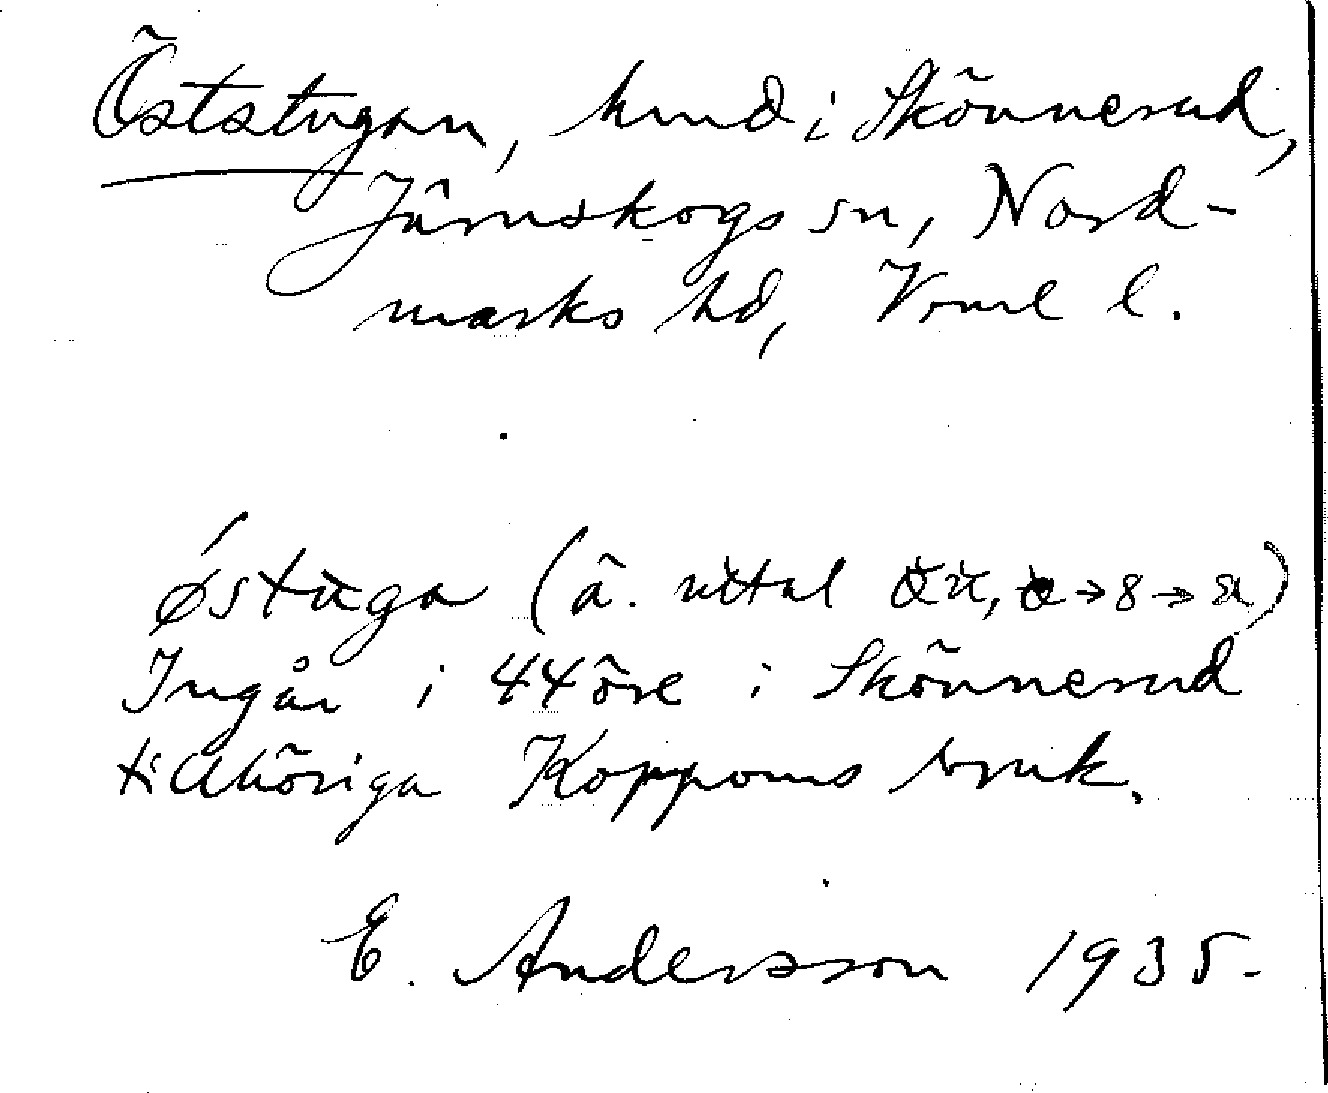 Öststugan, hmd i Skönnerud,
Järnskogs sn, Nord-
marks hd, Vrml l.
østuga (ä. uttal
Ingår i 44 öre i Skönnerud
tillhöriga Koppoms bruk.
E. Andersson 1935-